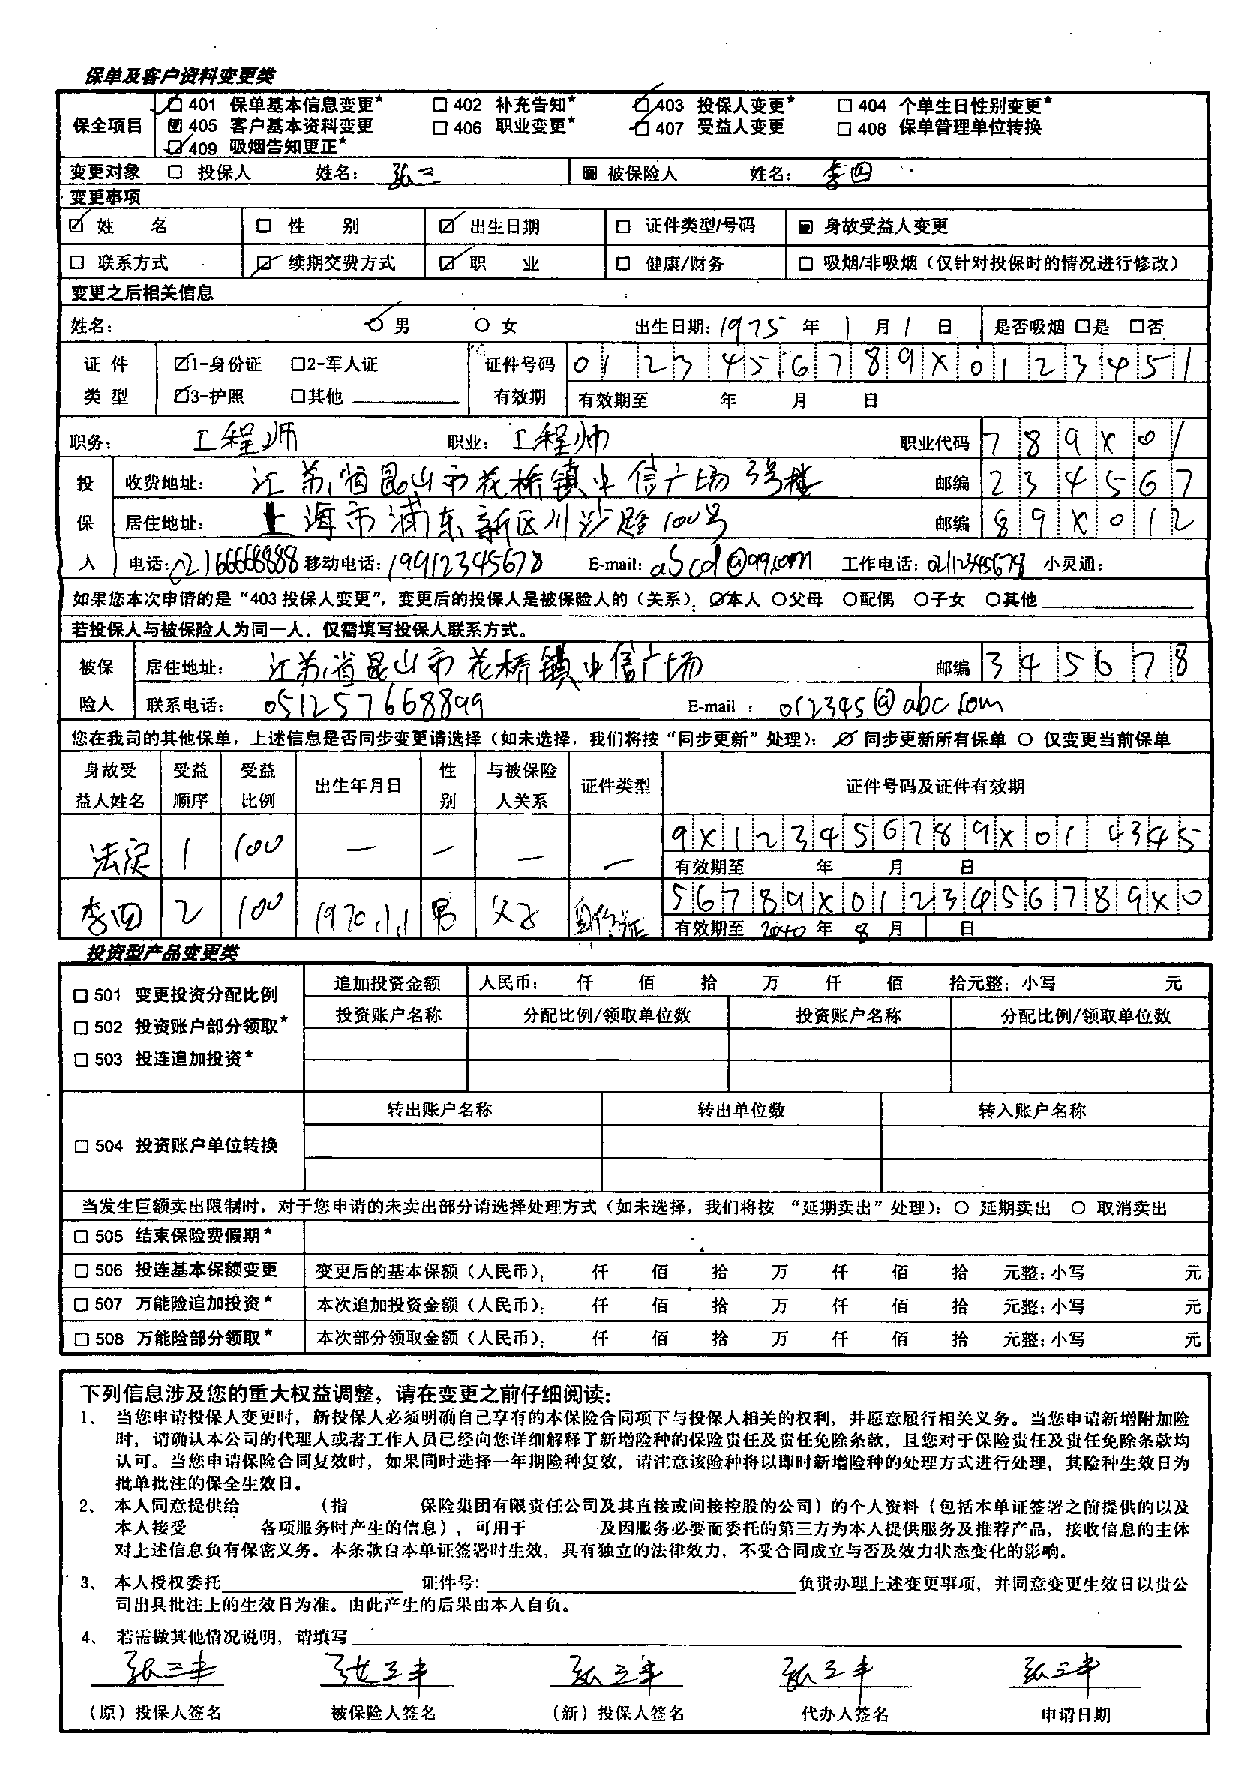 保单及客户资料变更类
保全项目 ☑401 保单基本信息变更* ☐402 补充告知* ☑403 投保人变更* ☐404 个单生日性别变更*
☑405 客户基本资料变更 ☐406 职业变更* ☑407 受益人变更 ☐408 保单管理单位转换
☑409 吸烟告知更正*
变更对象 ☐ 投保人 姓名: 张三 ☑ 被保险人 姓名: 李四
变更事项
☑ 姓 名 ☐ 性 别 ☑ 出生日期 ☐ 证件类型/号码 ☑ 身故受益人变更
☐ 联系方式 ☑ 续期交费方式 ☑ 职 业 ☐ 健康/财务 ☐ 吸烟/非吸烟（仅针对投保时的情况进行修改）
变更之后相关信息
姓名: ☑ 男 ○ 女 出生日期: 1975 年 1 月 1 日 是否吸烟 ☐是 ☐否
证 件 ☑1-身份证 ☐2-军人证 证件号码 0123456789X0123451
类 型 ☑3-护照 ☐其他 有效期 有效期至 年 月 日
职务: 工程师 职业: 工程师 职业代码 789X01
投 收费地址: 江苏省昆山市花桥镇中信广场3号楼 邮编 234567
保 居住地址: 上海市浦东新区川沙路100号 邮编 89X012
人 电话: 02166668888 移动电话: 19912345678 E-mail: abcd@qq.com 工作电话: 02112345678 小灵通:
如果您本次申请的是“403 投保人变更”, 变更后的投保人是被保险人的（关系） ☑本人 ○父母 ○配偶 ○子女 ○其他
若投保人与被保险人为同一人, 仅需填写投保人联系方式。
被保 居住地址: 江苏省昆山市花桥镇中信广场 邮编 345678
险人 联系电话: 051257668899 E-mail : 012345@abc.com
您在我司的其他保单, 上述信息是否同步变更请选择（如未选择, 我们将按“同步更新”处理）: ☑ 同步更新所有保单 ○ 仅变更当前保单
身故受益人姓名 受益顺序 受益比例 出生年月日 性别 与被保险人关系 证件类型 证件号码及证件有效期
法定 1 100 — — — — 9X123456789X014345
有效期至 年 月 日
李四 2 100 1970.1.1 男 父子 身份证 56789X0123456789X0
有效期至 2040 年 8 月 日
投资型产品变更类
☐ 501 变更投资分配比例 追加投资金额 人民币: 仟 佰 拾 万 仟 佰 拾元整; 小写 元
☐ 502 投资账户部分领取* 投资账户名称 分配比例/领取单位数 投资账户名称 分配比例/领取单位数
☐ 503 投连追加投资*
☐ 504 投资账户单位转换 转出账户名称 转出单位数 转入账户名称
当发生巨额卖出限制时, 对于您申请的未卖出部分请选择处理方式（如未选择, 我们将按 “延期卖出” 处理）: ○ 延期卖出 ○ 取消卖出
☐ 505 结束保险费假期*
☐ 506 投连基本保额变更 变更后的基本保额（人民币）: 仟 佰 拾 万 仟 佰 拾 元整; 小写 元
☐ 507 万能险追加投资* 本次追加投资金额（人民币）: 仟 佰 拾 万 仟 佰 拾 元整; 小写 元
☐ 508 万能险部分领取* 本次部分领取金额（人民币）: 仟 佰 拾 万 仟 佰 拾 元整; 小写 元
下列信息涉及您的重大权益调整，请在变更之前仔细阅读:
1、 当您申请投保人变更时，新投保人必须明确自己享有的本保险合同项下与投保人相关的权利，并愿意履行相关义务。当您申请新增附加险
时，请确认本公司的代理人或者工作人员已经向您详细解释了新增险种的保险责任及责任免除条款，且您对于保险责任及责任免除条款均
认可。当您申请保险合同复效时，如果同时选择一年期险种复效，请注意该险种将以即时新增险种的处理方式进行处理，其险种生效日为
批单批注的保全生效日。
2、 本人同意提供给 （指 保险集团有限责任公司及其直接或间接控股的公司）的个人资料（包括本单证签署之前提供的以及
本人接受 各项服务时产生的信息），可用于 及因服务必要而委托的第三方为本人提供服务及推荐产品，接收信息的主体
对上述信息负有保密义务。本条款自本单证签署时生效，具有独立的法律效力，不受合同成立与否及效力状态变化的影响。
3、 本人授权委托 证件号: 负责办理上述变更事项，并同意变更生效日以贵公
司出具批注上的生效日为准。由此产生的后果由本人自负。
4、 若需做其他情况说明，请填写
张三丰 张三丰 张三丰 张三丰 张三丰
（原）投保人签名 被保险人签名 （新）投保人签名 代办人签名 申请日期